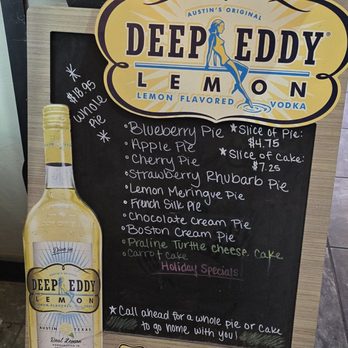 AUSTIN'S ORIGINAL
DEEP EDDY
LEMON
LEMON FLAVORED VODKA
* $18.95
whole
Pie *
• Blueberry Pie
• Apple Pie
• Cherry Pie
• Strawberry Rhubarb Pie
• Lemon Meringue Pie
• French Silk Pie
• Chocolate Cream Pie
• Boston Cream Pie
• Praline Turtle Cheese Cake
• Carrot Cake
Holiday Specials
* Slice of Pie:
$4.75
* Slice of Cake:
$7.25
DEEP EDDY
LEMON
AUSTIN TEXAS
Real Lemon
* Call ahead for a whole pie or cake
to go home with you!